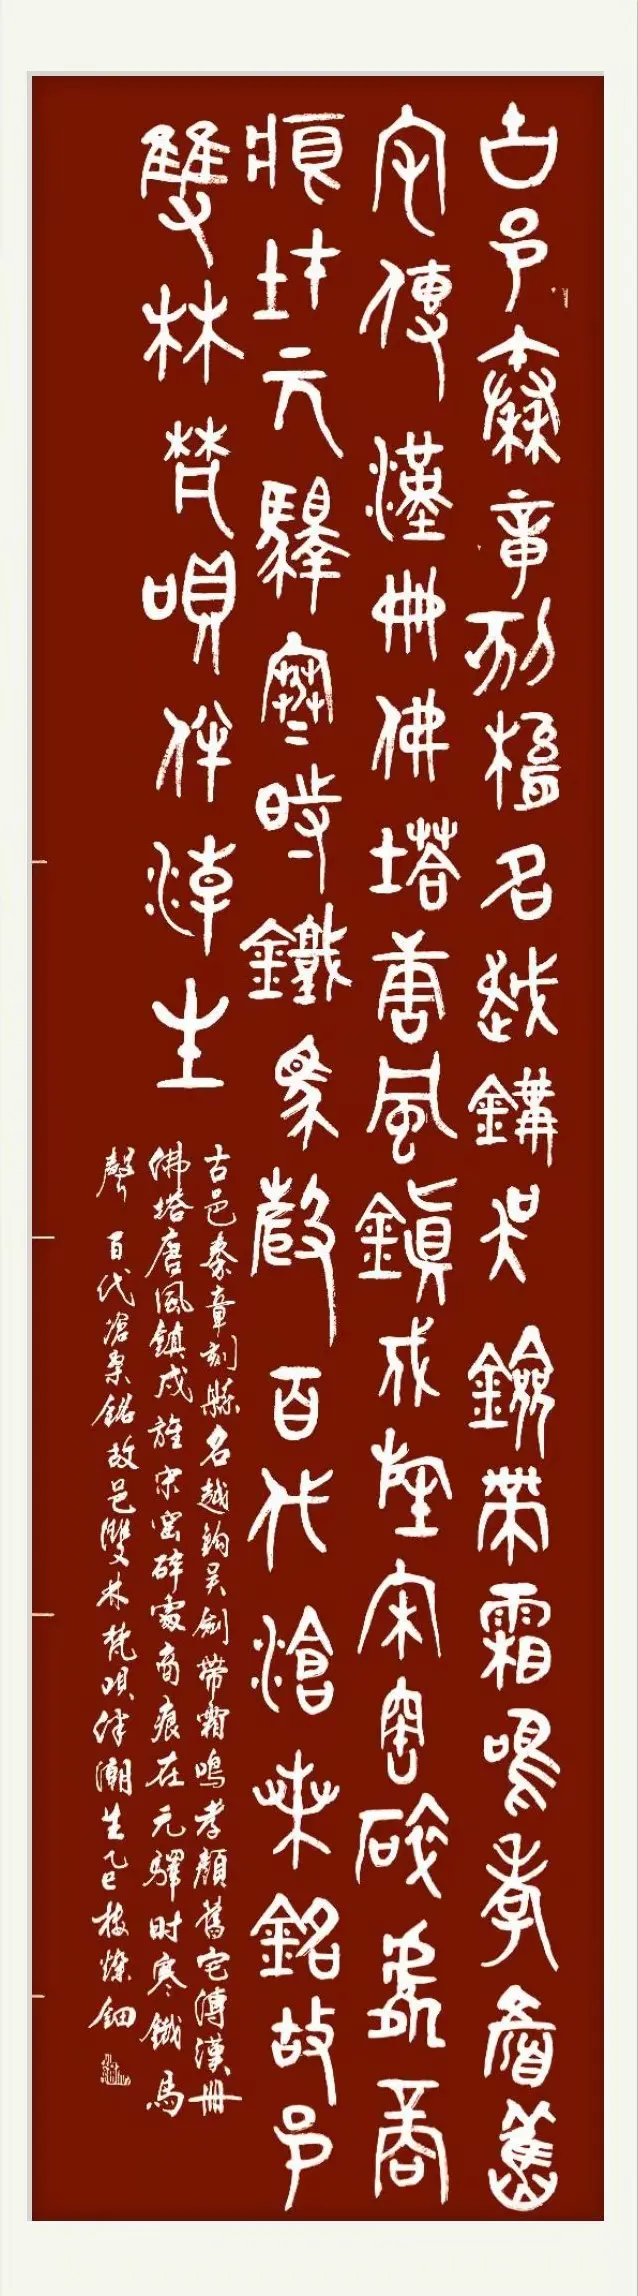 古邑秦章刻縣名越鉤吳劍帶霜鳴孝顏舊
宅傳漢冊佛塔唐風鎮戍旌宋窑碎處商
痕在元驛寒時鐵馬聲百代滄桑銘故邑
雙林梵唄伴潮生
古邑秦章刻縣名越鈎吳劍帶霜鳴孝顏舊宅傳漢冊
佛塔唐風鎮戍旌宋窑碎處商痕在元驛时寒鐵馬
聲百代滄桑銘故邑雙林梵唄伴潮生乙巳